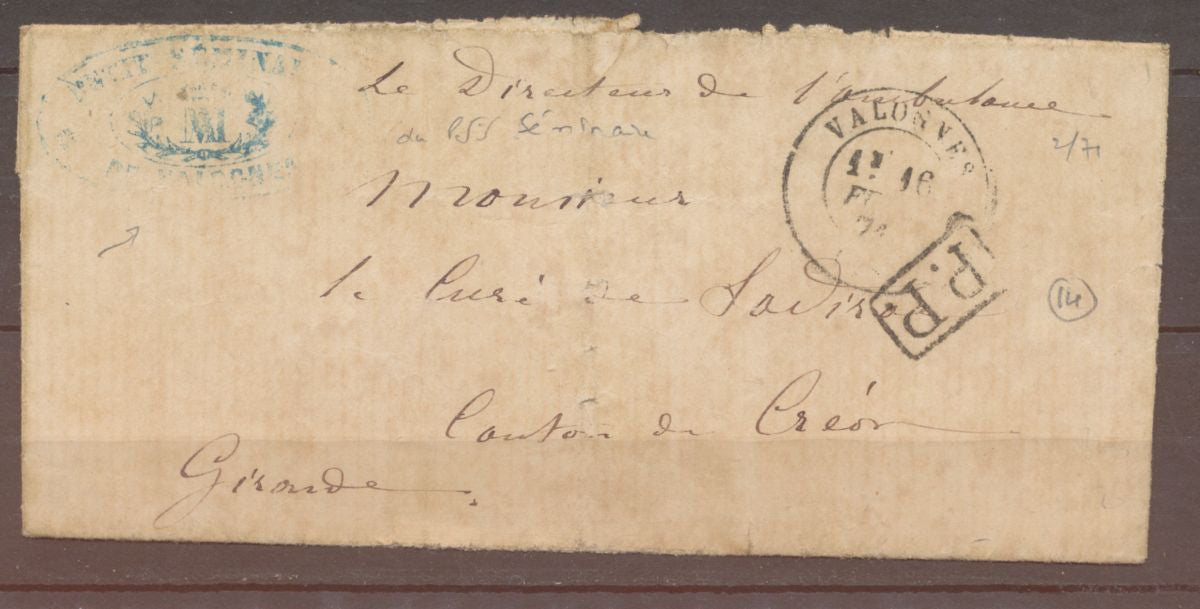 PETIT SÉMINAIRE
M
DE VALOGNES
Le Directeur de l'ambulance
du Séminaire
2/71
VALOGNES
16
71
Monsieur
P.P.
le Curé de Sadirac
14
Canton de Créon
Gironde